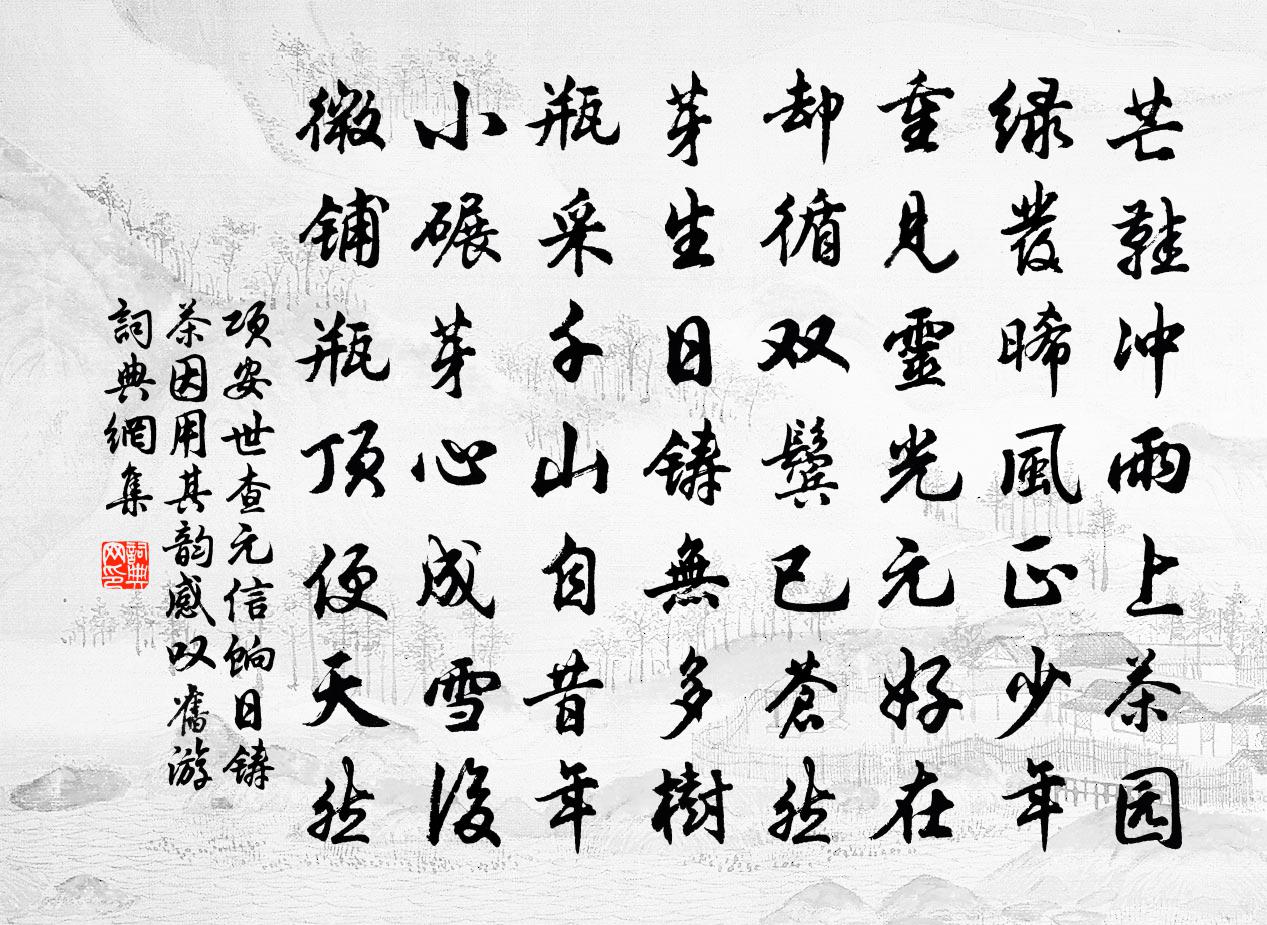 芒鞋冲雨上茶园
绿发晞風正少年
重見靈光元好在
却循双鬓已蒼然
芽生日铸無多樹
瓶采千山自昔年
小碾芽心成雪後
微铺瓶顶便天然
项安世查元信餉日铸
茶因用其韵感叹舊游
詞典網集
詞典网印